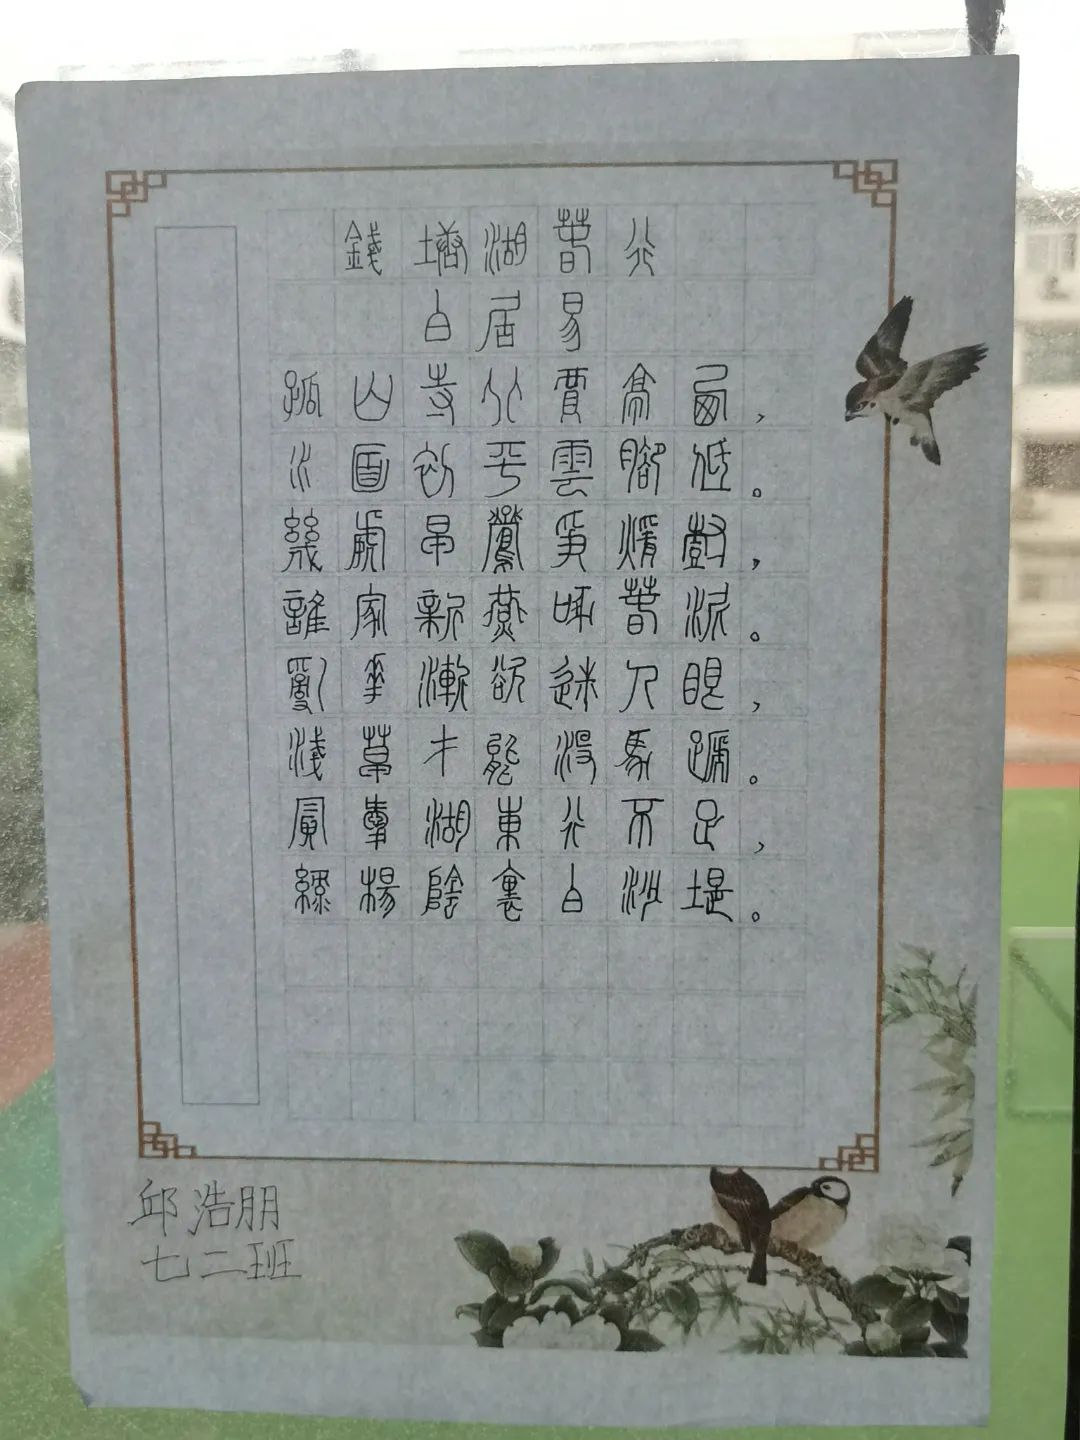 錢塘湖萅行
白居易
孤山寺北賈亭西，
水面初平雲腳低。
幾處早鶯爭煖樹，
誰家新燕啄萅泥。
亂華漸欲迷人眼，
淺草才能沒馬蹏。
最愛湖東行不足，
綠楊陰裏白沙堤。
邱浩朋
七二班